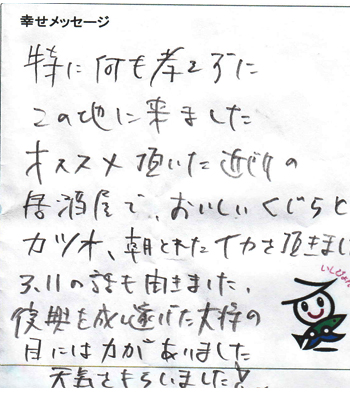 幸せメッセージ
特に何も考えずに
この地に来ました
オススメ頂いた近所の
居酒屋で、おいしいくじらと
カツオ、朝とれたイカを頂きまし
3.11の話も聞きました、
復興を成し遂げた大将の
目には力がありました
元気をもらいました!